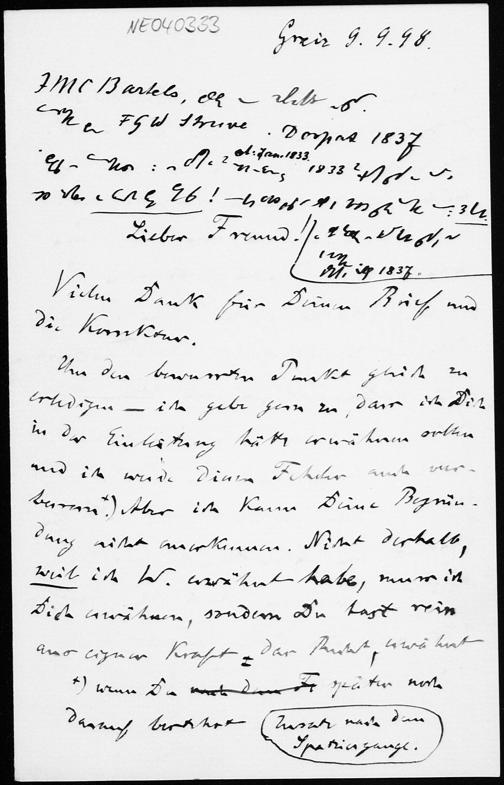 NE040333
Greiz 9.9.98.
JMC Bartels,
FGW Struve. Dorpat 1837
1833
Lieber Freund!
1837.
Vielen Dank für Deinen Brief und
die Korrektur.
Um den bewussten Punkt gleich zu
erledigen — ich gebe gern zu, dass ich Dich
in der Einleitung hätte erwähnen sollen
und ich werde diesen Fehler auch ver-
bessern +) Aber ich kann Deine Begrün-
dung nicht anerkennen. Nicht deshalb,
weil ich W. erwähnt habe, muss ich
Dich erwähnen, sondern Du hast rein
aus eigner Kraft das Recht, erwähnt
+) wenn Du später noch
darauf bestehst
Zusatz nach dem
Spaziergange.